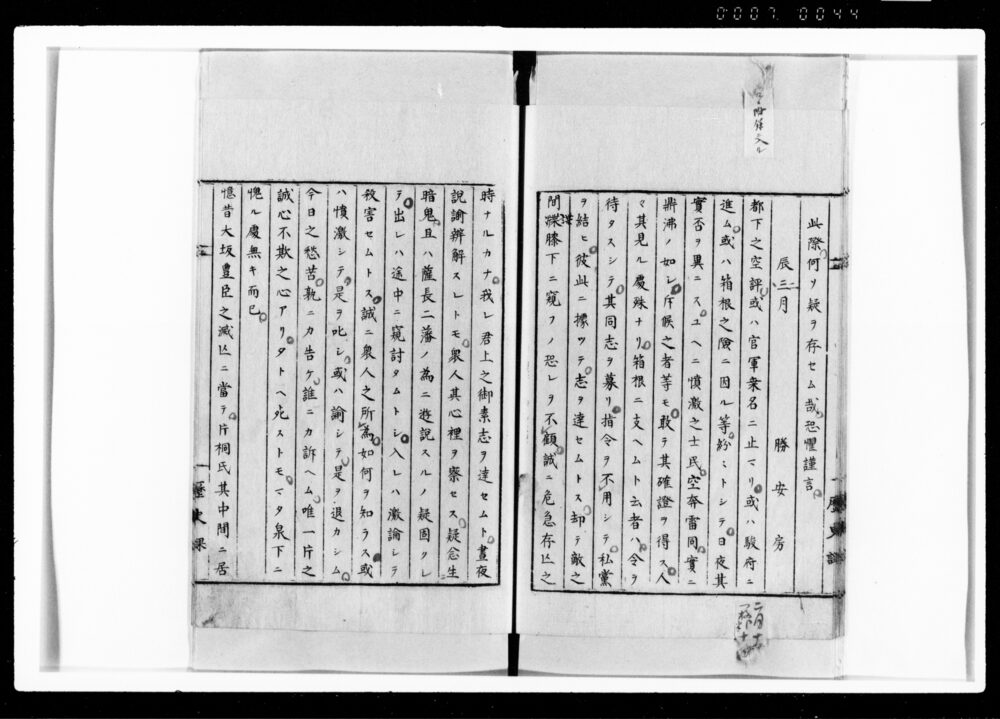 0007.0044
此際何ソ疑ヲ存セム哉恐懼謹言
辰三月 勝安房
都下之空評或ハ官軍桑名ニ止マリ或ハ駿府ニ
進ム或ハ箱根之險ニ因ル等紛ミトシテ日夜其
實否ヲ異ニスユヘニ憤激之士民空奔雷同實ニ
鼎沸ノ如シ斥候之者等モ敢テ其確證ヲ得ス人
マ其見ル慶殊ナリ箱根ニ支ヘムト云者ハ令ヲ
待タスシテ其同志ヲ募リ指令ヲ不用シテ私黨
ヲ結ヒ彼此ニ據ツテ志ヲ達セムトス却テ敵之
間諜膝下ニ窺フノ恐レヲ不顧誠ニ危急存亡之
時ナルカナ我レ君上之御素志ヲ達セムト晝夜
說諭辨解スレトモ衆人其心裡ヲ察セス疑念生
暗鬼且ハ薩長二藩ノ為ニ遊說スルノ疑固クレ
テ出レハ途中ニ窺討タムトシ入レハ激論シテ
殺害セムトス誠ニ衆人之所為如何ヲ知ラス或
ハ憤激シテ是ヲ叱シ或ハ諭シテ是ヲ退カシム
今日之愁苦孰ニカ告ケ誰ニカ訴ヘム唯一片之
誠心不欺之心アリタトヘ死ストモマタ泉下ニ
愧ル慶無キ而已
憶昔大坂豊臣之滅亡ニ當ヲ片桐氏其中間ニ居
歷史課
歷史課